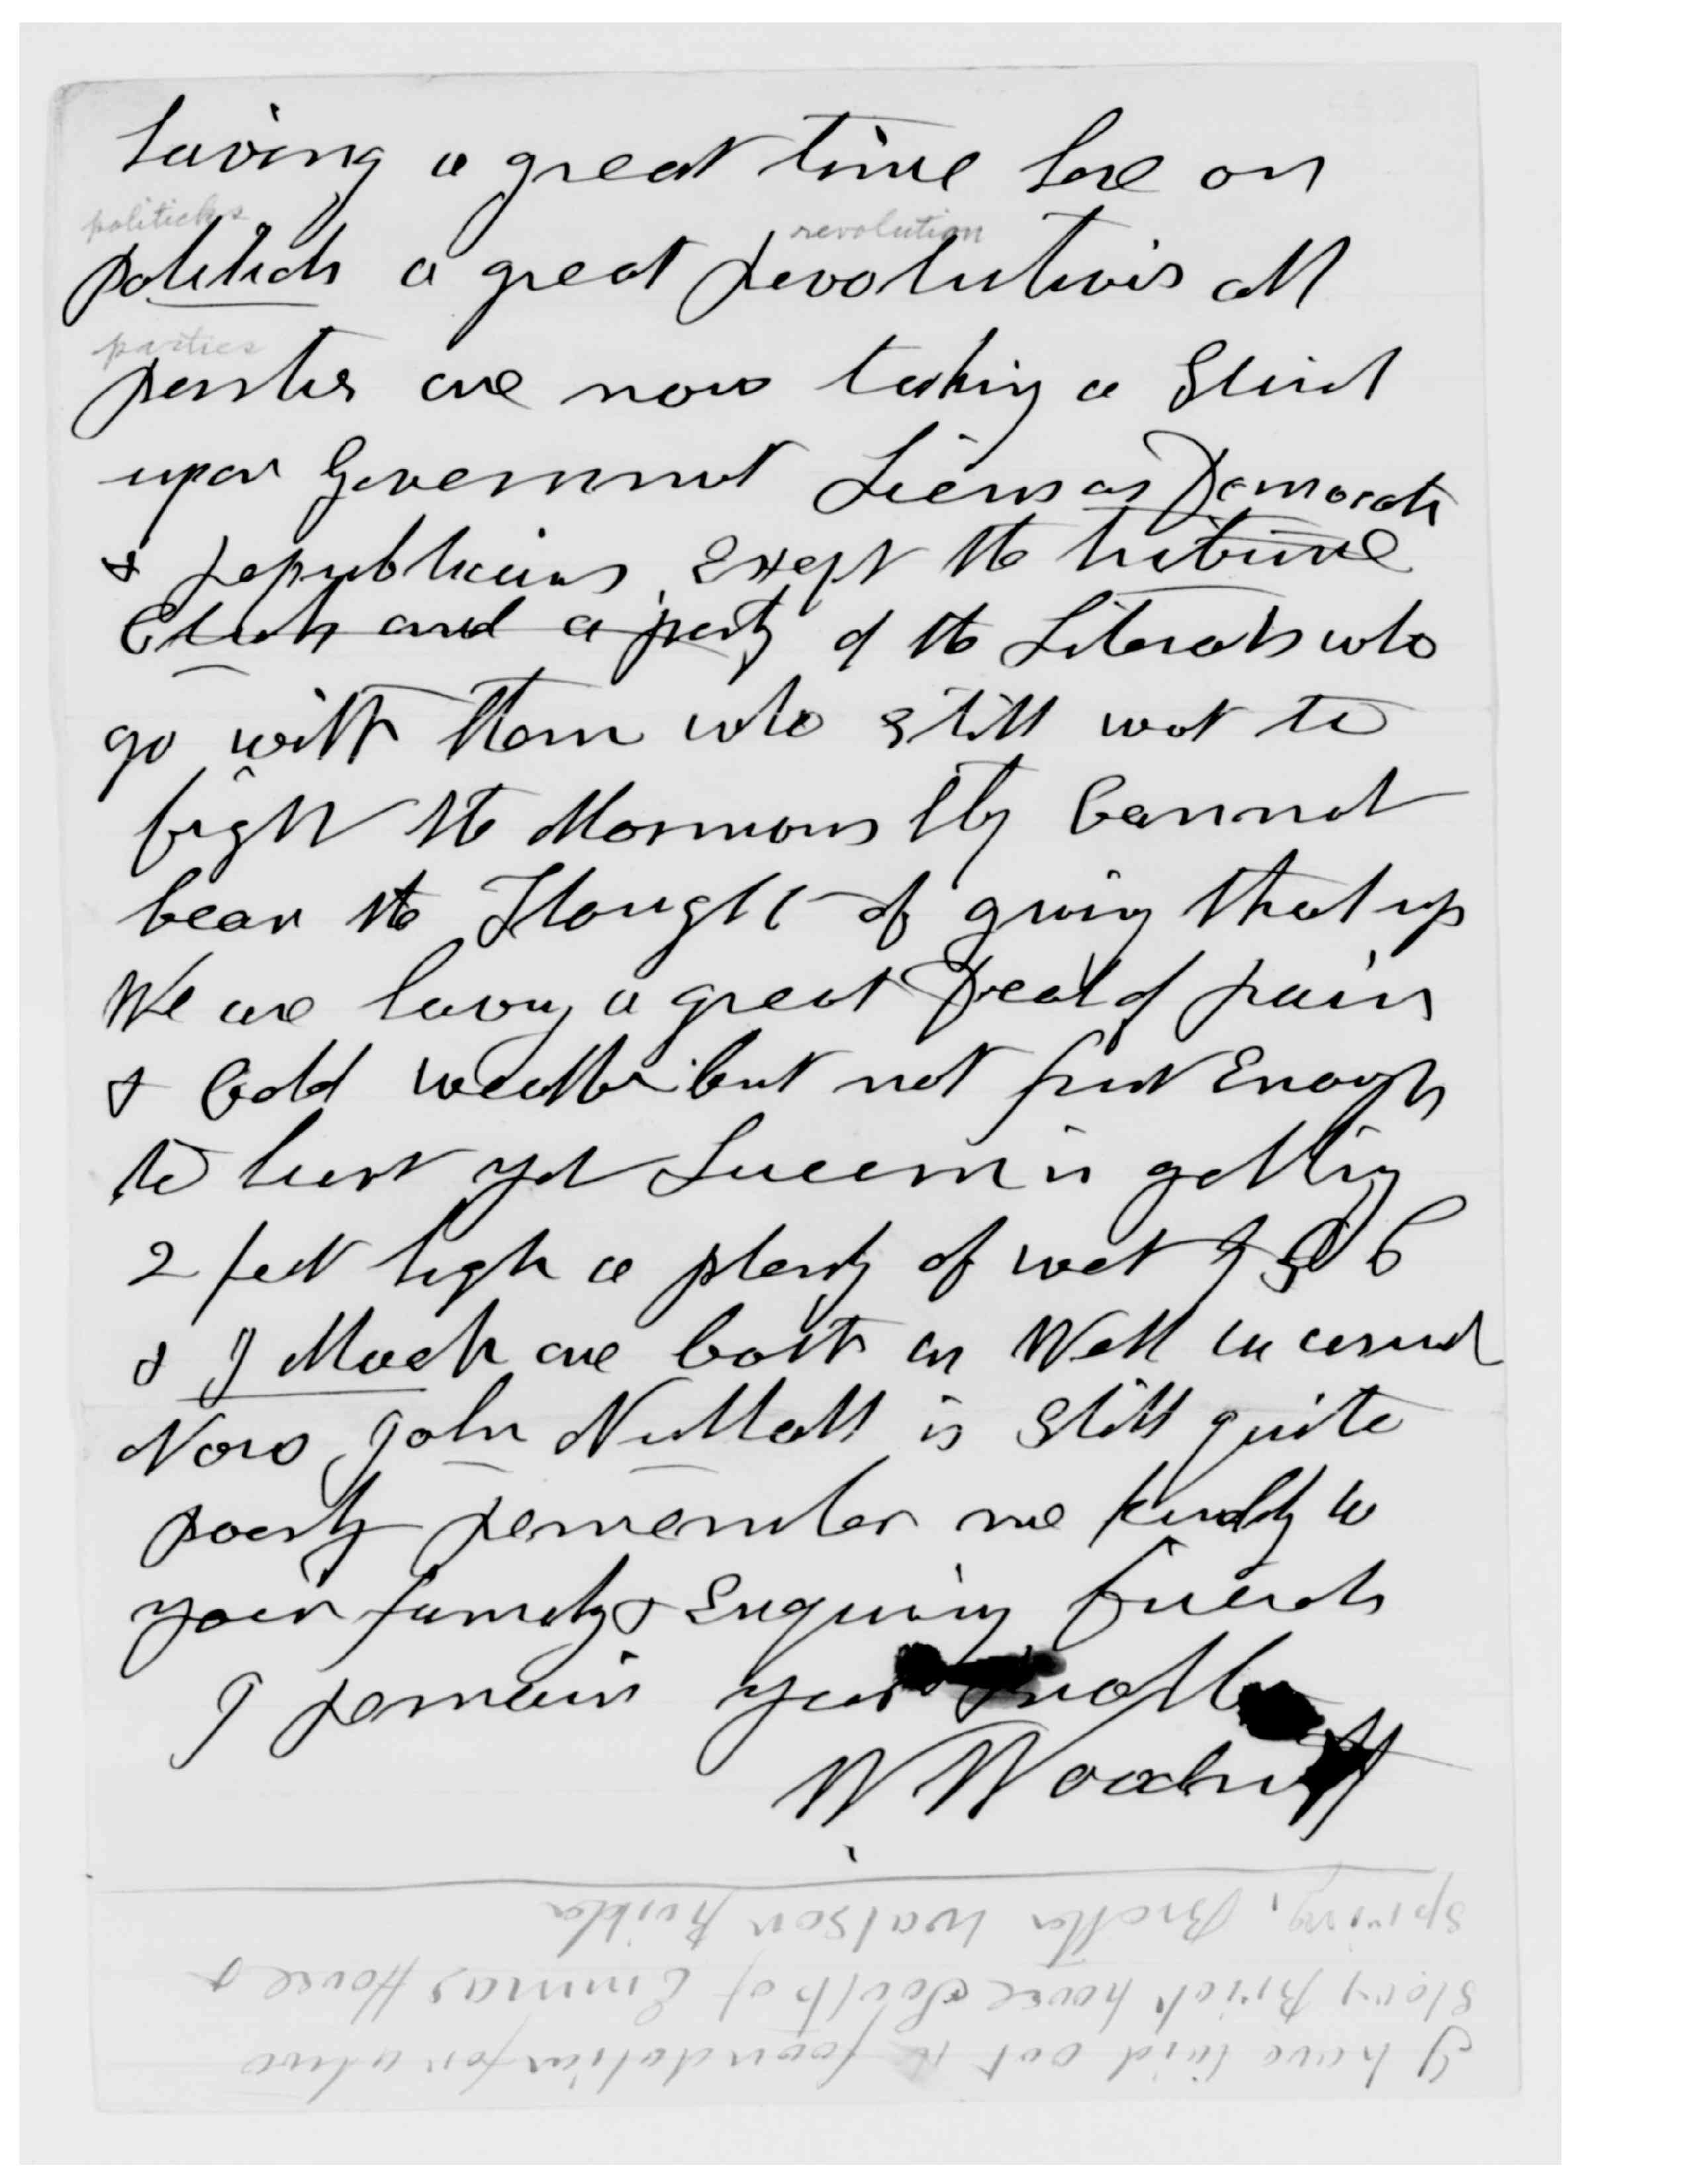 having a great time here on
politicks
politicks a great revolution
revolution is all
parties
parties are now taking a Stand
upon Government Lines as Democrats
& republicans Except the tribune
Click and a party of the Liberals who
go with them who still wat to
fight the Mormons they Cannot
bear the Thought of giving that up
We are having a great Deal of rain
& Cold weather but not frost Enough
to hurt yet Lucern is getting
2 feet high a plenty of wet
& J Mack are both on Well
Now John Nuttall is Still quite
poorly remember me kindly to
your family & Enquiring friends
I remain your Brother
W Woodruff
I have laid out the foundation for a two
Story Brick house South of Emmas House &
spring, Brother Watson